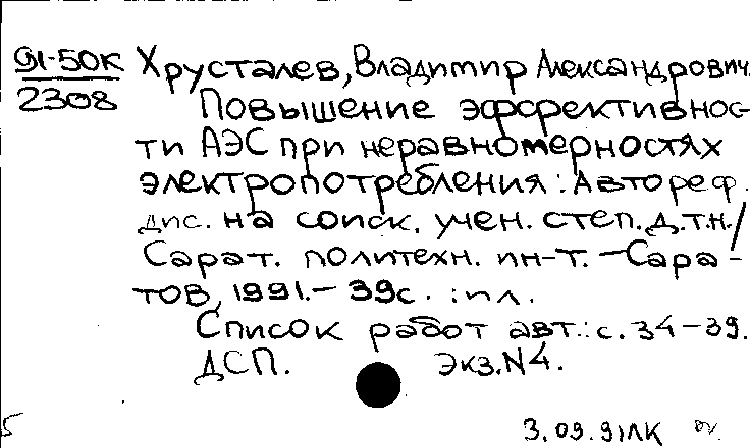 91-50к Хрусталев, Владимир Александрович.
2308 Повышение эффективнос-
ти АЭС при неравномерностях
электропотребления : Автореф.
дис. на соиск. учен. степ. д.т.н./
Сарат. политехн. ин-т. – Сара-
тов, 1991. – 39с. : ил.
Список работ авт.: с. 34-39.
ДСП. Экз. N4.
5 3.09.91ЛК